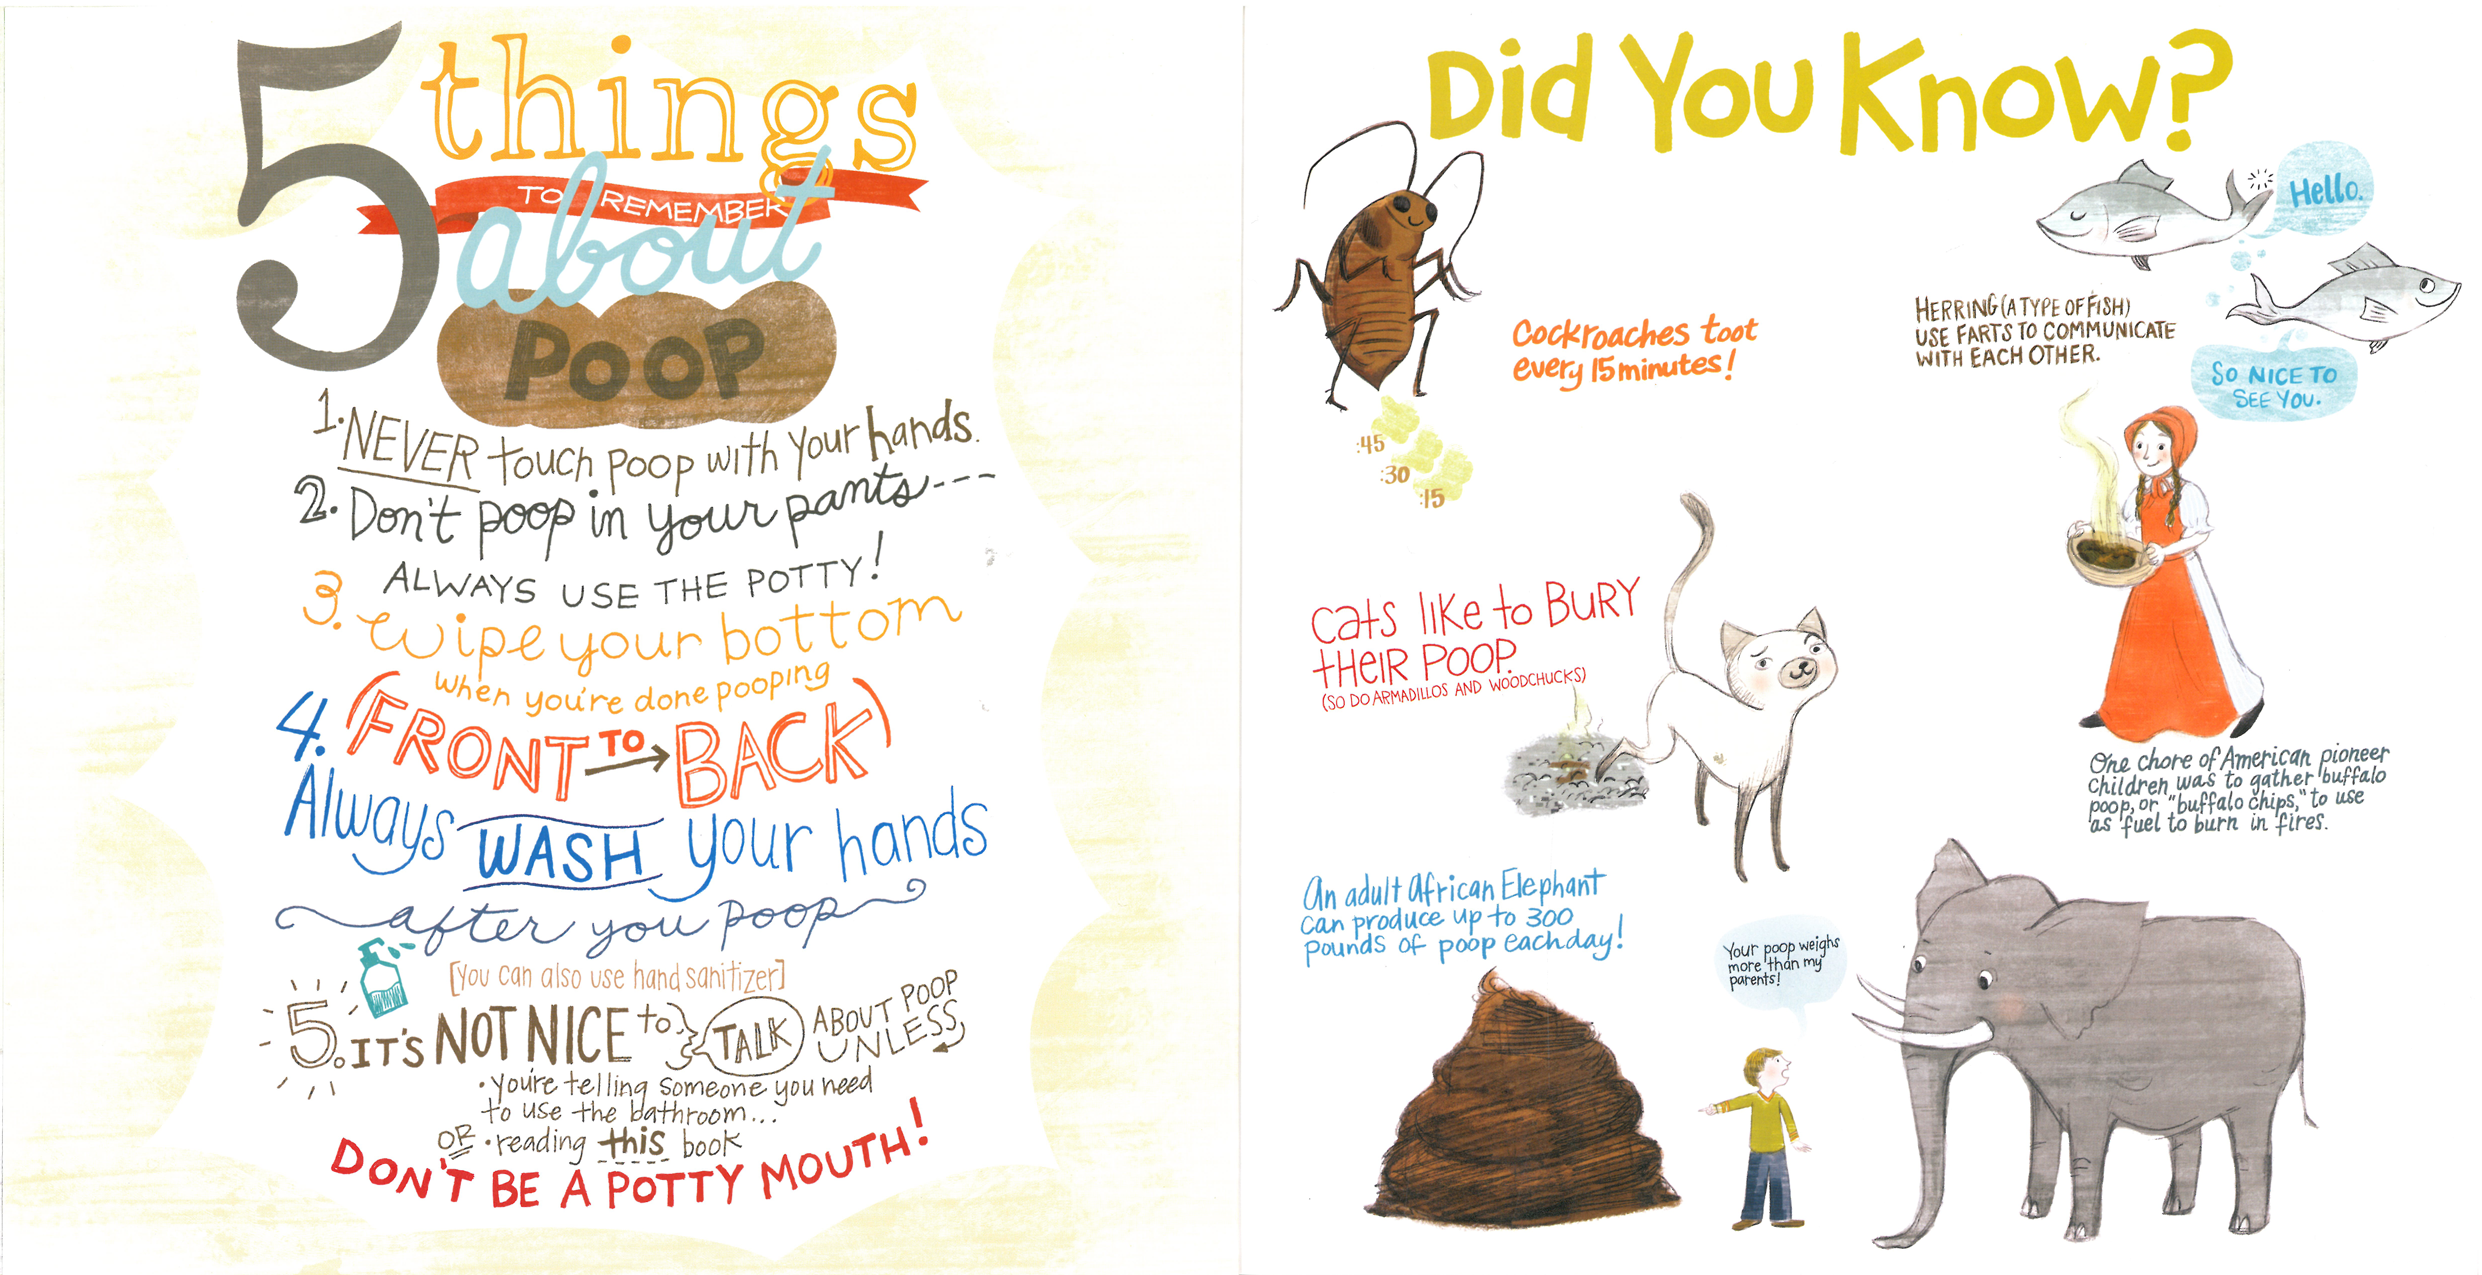 5 things
TO REMEMBER
about
POOP
1. NEVER touch poop with your hands.
2. Don't poop in your pants---
ALWAYS USE THE POTTY!
3. wipe your bottom
when you're done pooping
(FRONT TO BACK)
4. Always WASH your hands
after you poop
[you can also use hand sanitizer]
5. IT'S NOT NICE to TALK ABOUT POOP
UNLESS
• you're telling someone you need
to use the bathroom...
OR • reading this book
DON'T BE A POTTY MOUTH!
Did You Know?
Cockroaches toot
every 15 minutes!
:45
:30
:15
Hello.
HERRING (A TYPE OF FISH)
USE FARTS TO COMMUNICATE
WITH EACH OTHER.
SO NICE TO
SEE YOU.
Cats like to BURY
tHeIR POOP.
(SO DO ARMADILLOS AND WOODCHUCKS)
One chore of American pioneer
children was to gather buffalo
poop, or "buffalo chips," to use
as fuel to burn in fires.
An adult African Elephant
can produce up to 300
pounds of poop each day!
Your poop weighs
more than my
parents!